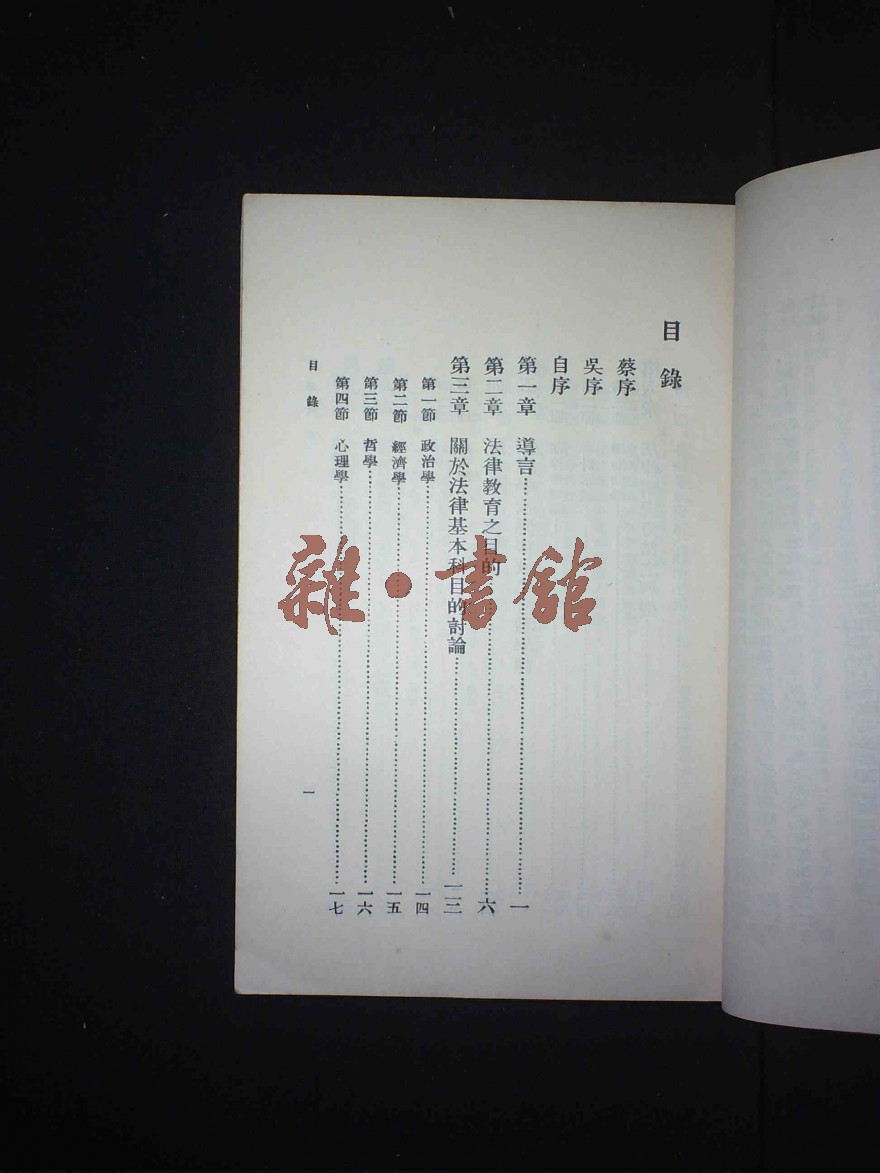 目錄
蔡序
吳序
自序
第一章 導言……一
第二章 法律教育之目的……六
第三章 關於法律基本科目的討論……一三
第一節 政治學……一四
第二節 經濟學……一五
第三節 哲學……一六
第四節 心理學……一七
目錄
一
雜·書館